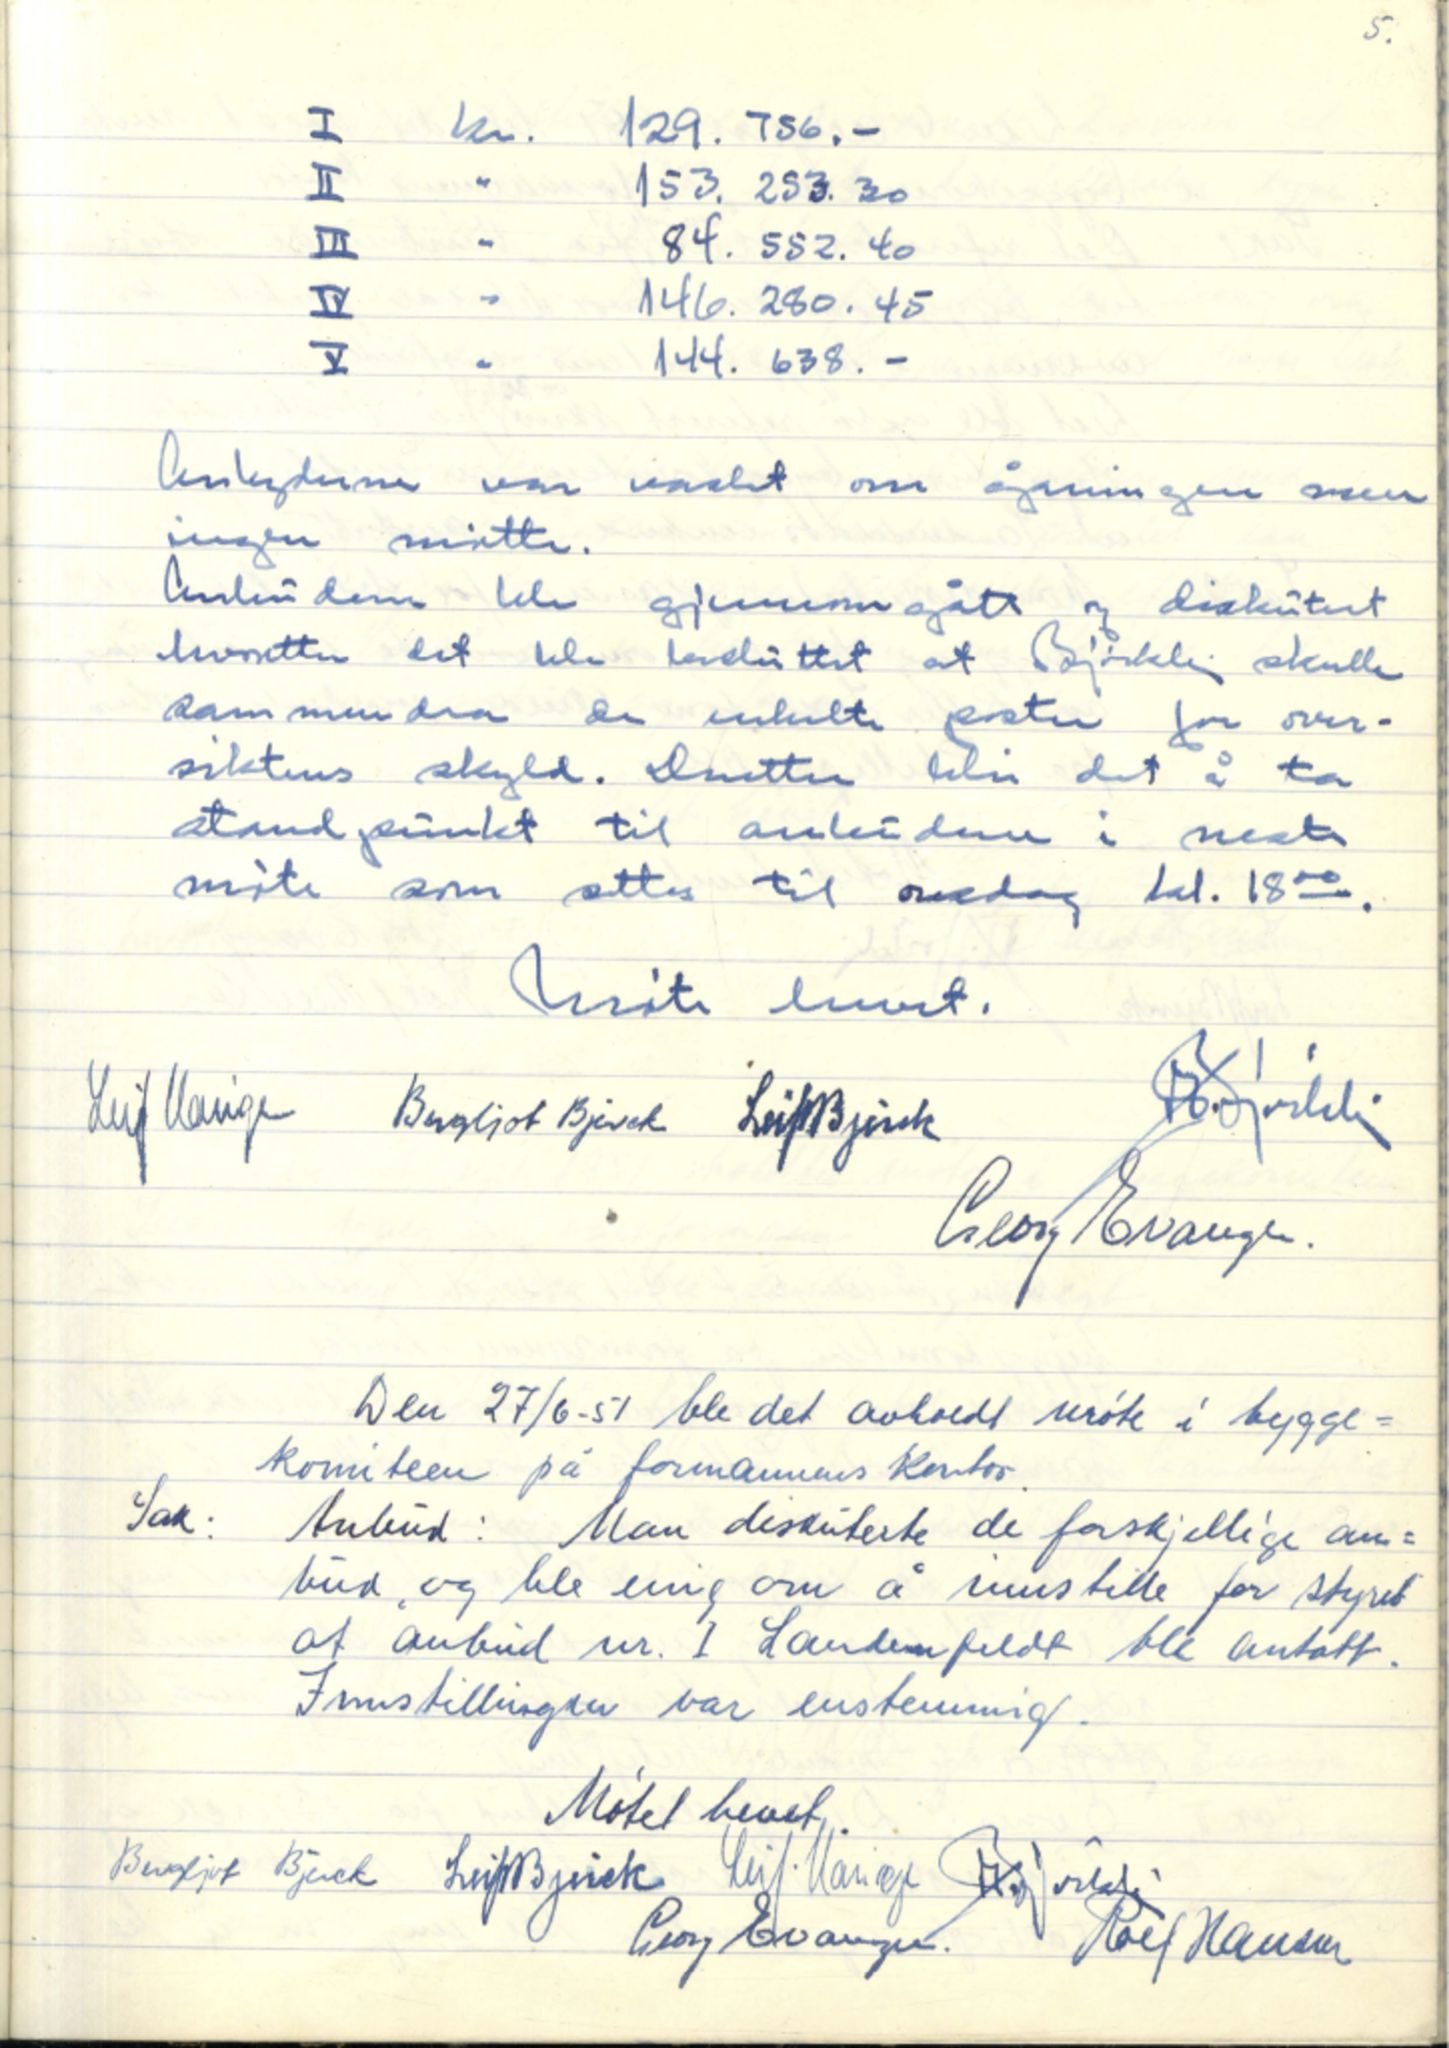 5.
I kr. 129.756.-
II " 153.253.30
III " 84.552.40
IV " 146.280.45
V " 144.638.-
Anbyderne var varslet om åpningen men
ingen møtte.
Anbudene ble gjennomgått og diskutert
hvoretter det ble besluttet at Bjørkli skulle
sammendra de enkelte poster for over-
siktens skyld. Deretter blir det å ta
standpunkt til anbudene i neste
møte som settes til onsdag kl. 18 00.
Møte hevet.
Leif Bergljot Bjerck Leif Bjerck Bjørkli
Georg Evanger.
Den 27/6-51 ble det avholdt møte i bygge=
komiteen på formannens kontor.
Sak: Anbud: Man diskuterte de forskjellige an=
bud, og ble enig om å innstille for styret
at anbud nr. I Landenfeldt ble antatt.
Innstillingen var enstemmig.
Møtet hevet.
Bergljot Bjerck Leif Bjerck Leif Bjørkli
Georg Evanger. Rolf Hansen